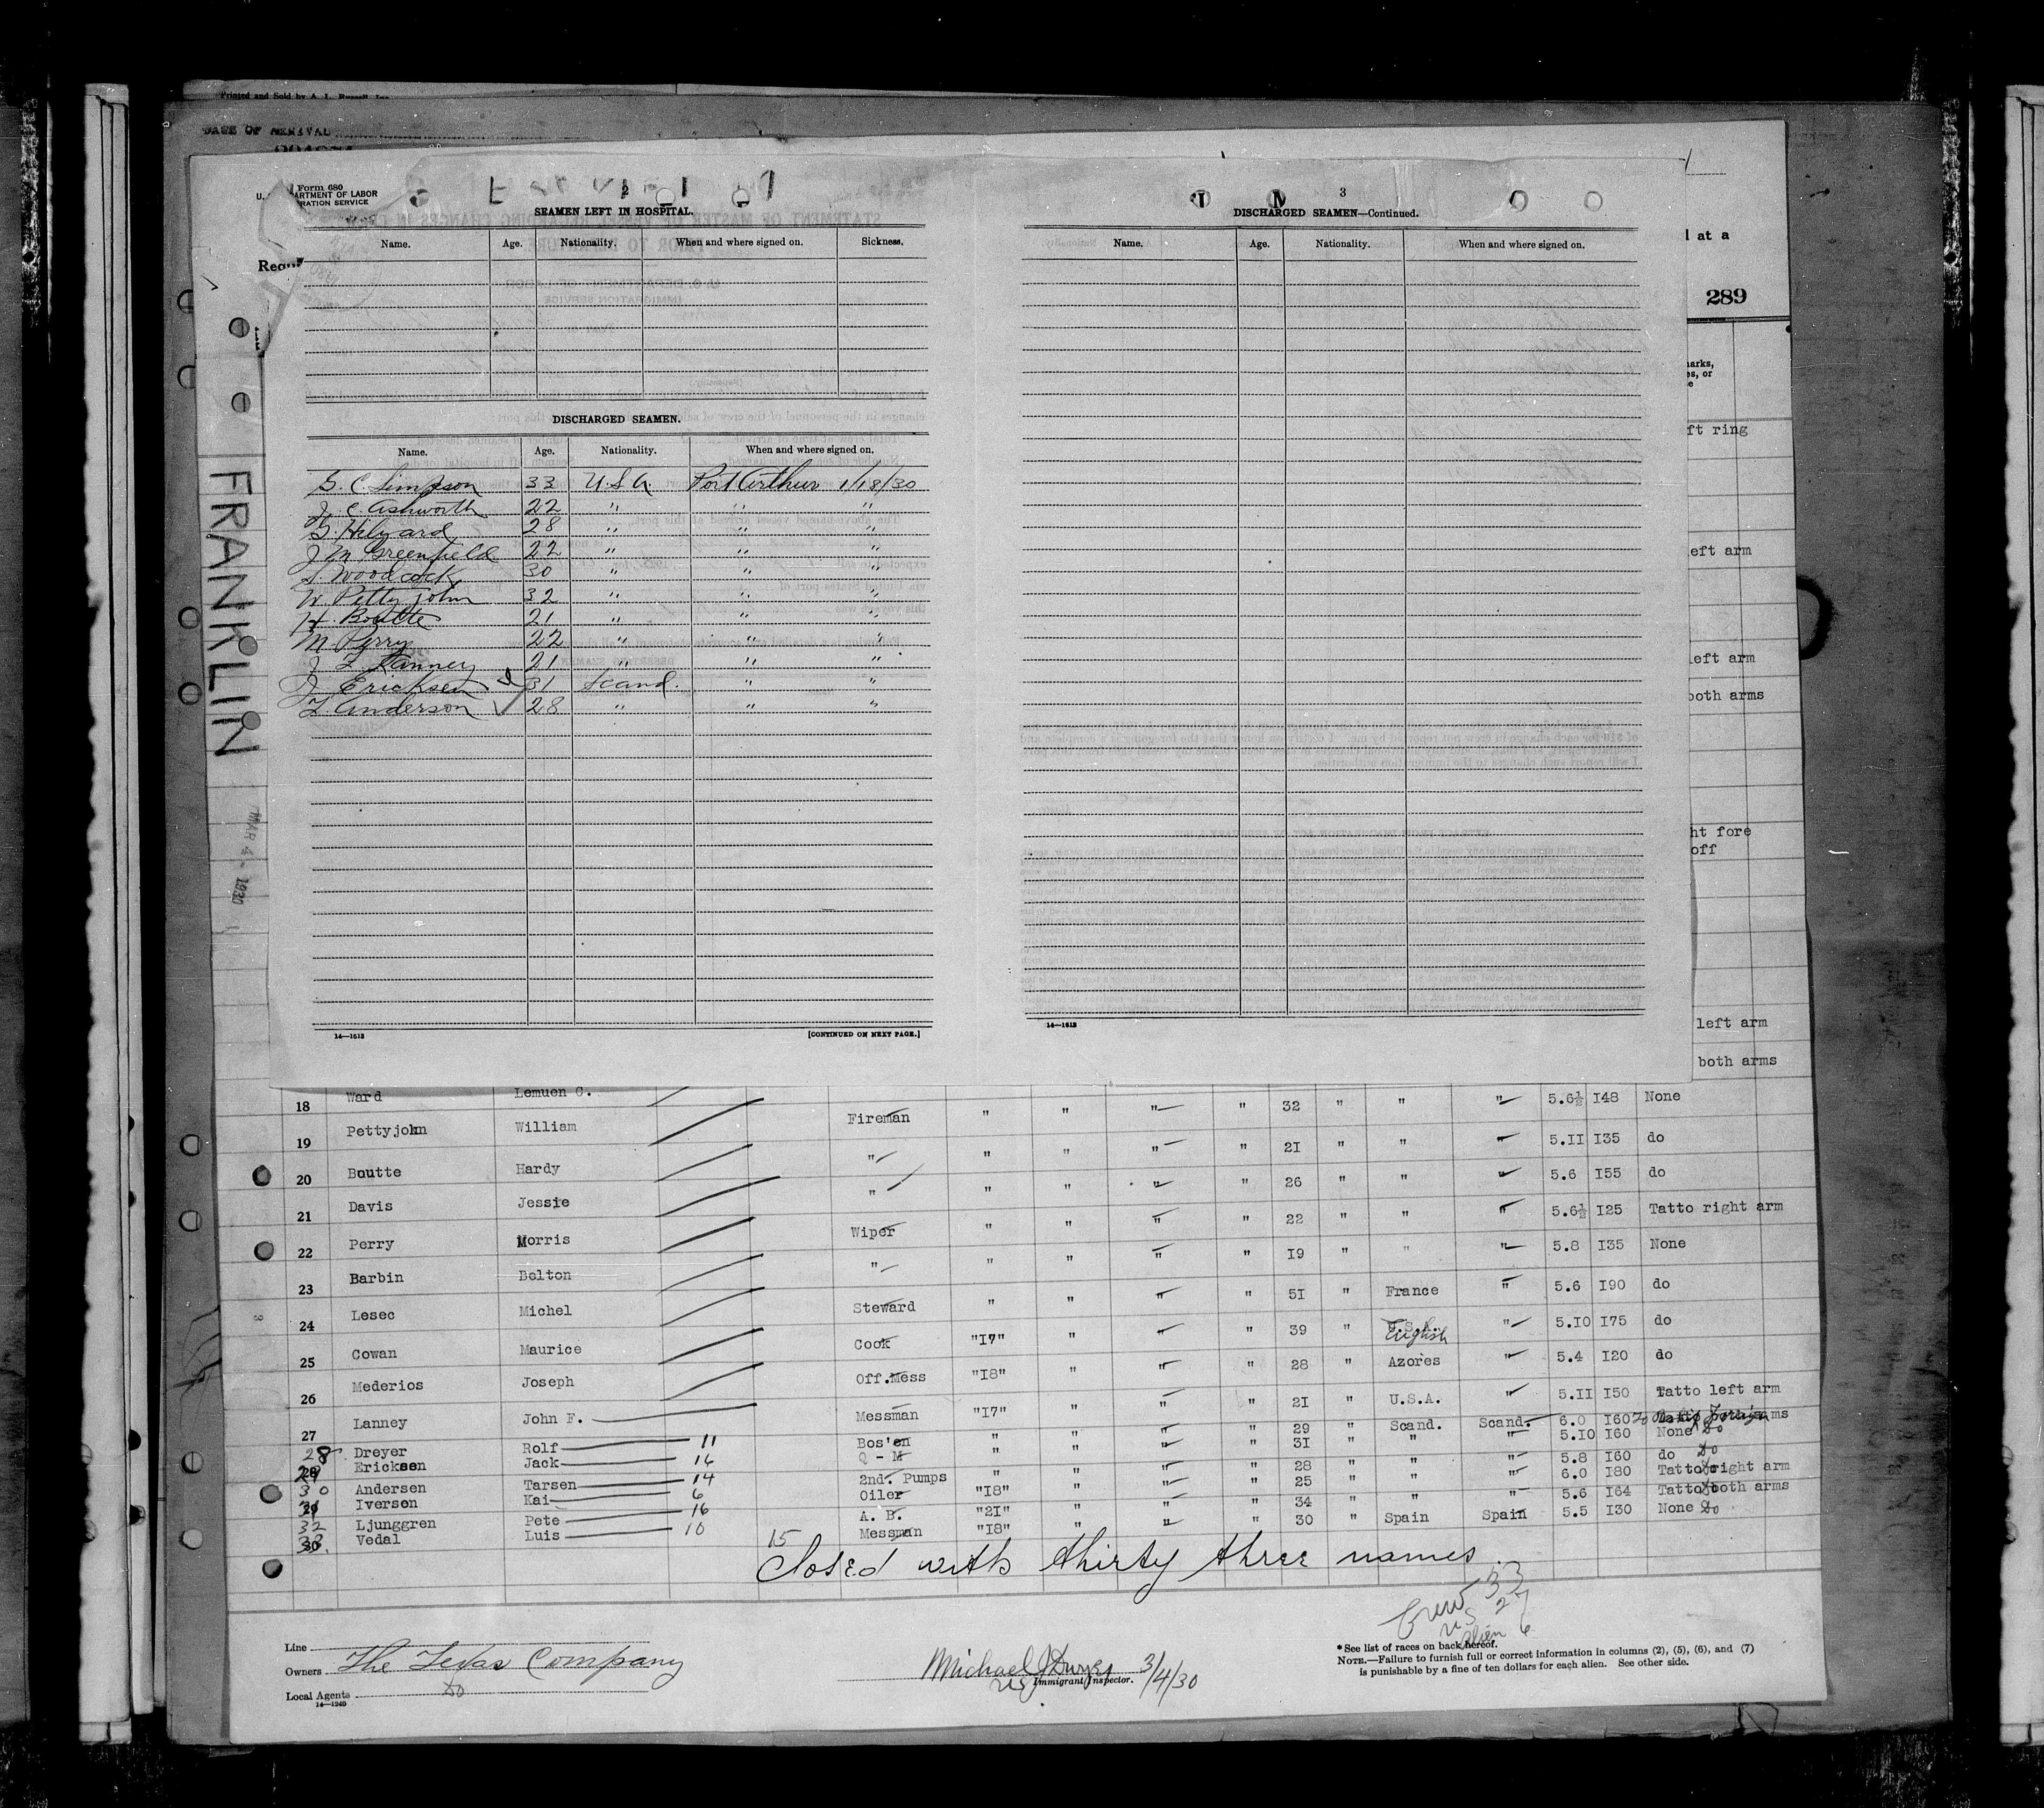 Printed and Sold by A. L. Russell, Inc.
DATE OF ARRIVAL
Form 680
U. ARTMENT OF LABOR
RATION SERVICE
2
SEAMEN LEFT IN HOSPITAL.
Name. Age. Nationality. When and where signed on. Sickness.
DISCHARGED SEAMEN.
Name. Age. Nationality. When and where signed on.
G. C. Simpson 33 U.S.A. Port Arthur 1/18/30
J. C. Ashworth 22 " " "
G. Hilyard 28 " " "
J M Greenfield 22 " " "
S. Woodcock 30 " " "
W. Pettyjohn 32 " " "
H. Boutte 21 " " "
M. Perry 22 " " "
J. F. Lanney 21 " " "
J. Ericksen 31 Scand. " "
T. Anderson 28 " " "
14—1613 [CONTINUED ON NEXT PAGE.]
3
DISCHARGED SEAMEN—Continued.
Name. Age. Nationality. When and where signed on.
14—1613
FRANKLIN
MAR 4- 1930
l at a
289
arks,
es, or
e
ft ring
eft arm
left arm
both arms
ht fore
off
left arm
both arms
18 Ward Lemuen C. Fireman " " " " 32 " " " 5.6½ I48 None
19 Pettyjohn William " " " " " 21 " " " 5.II I35 do
20 Boutte Hardy " " " " " 26 " " " 5.6 I55 do
21 Davis Jessie Wiper " " " " 22 " " " 5.6½ I25 Tatto right arm
22 Perry Morris " " " " " I9 " " " 5.8 I35 None
23 Barbin Belton Steward " " " " 5I " France " 5.6 I90 do
24 Lesec Michel Cook "I7" " " " 39 " U.S.A. English " 5.IO I75 do
25 Cowan Maurice Off.Mess "I8" " " " 28 " Azores " 5.4 I20 do
26 Mederios Joseph Messman "I7" " " " 2I " U.S.A. " 5.II I50 Tatto left arm
27 Lanney John F. Bos'en " " " " 29 " Scand. Scand. 6.0 I60
28 Dreyer Rolf 11 Q - M " " " " 31 " " " 5.IO I60 None Do
29 Ericksen Jack 14 2nd. Pumps " " " " 28 " " " 5.8 I60 do Do
30 Andersen Tarsen 14 Oiler "I8" " " " 25 " " " 6.0 I80 Tatto right arm
31 Iversen Kai 6 A. B. "2I" " " " 34 " " " 5.6 I64 Tatto both arms
32 Ljunggren Pete 16 Messman "I8" " " " 30 " Spain Spain 5.5 I30 None Do
33 Vedal Luis 10
15
Closed with thirty three names.
Crew 33
US 27
Alien 6
Line
Owners The Texas Company
Local Agents Do
14—1240
Michael J Dwyer 3/4/30
US Immigrant Inspector.
* See list of races on back hereof.
NOTE.—Failure to furnish full or correct information in columns (2), (5), (6), and (7)
is punishable by a fine of ten dollars for each alien. See other side.